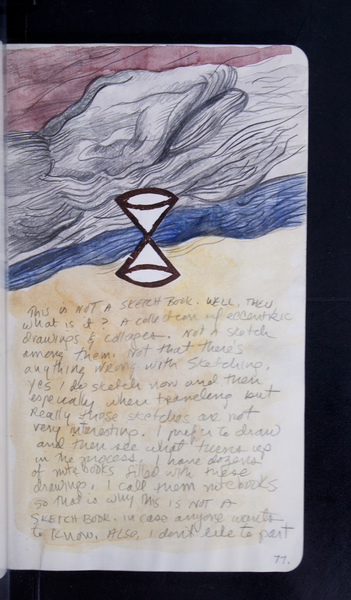 THIS IS NOT A SKETCH BOOK. WELL, THEN,
what is it? A collection of eccentric
drawings & collages. Not a sketch
among them. Not that there's
anything wrong with sketching.
Yes I do sketch now and then
especially when traveling but
Really those sketches are not
very interesting. I prefer to draw
and then see what turns up
in the process. I have dozens
of notebooks filled with these
drawings. I call them notebooks
so that is why this is NOT A
SKETCH BOOK. in case anyone wants
to know. Also, I don't like to part
77.